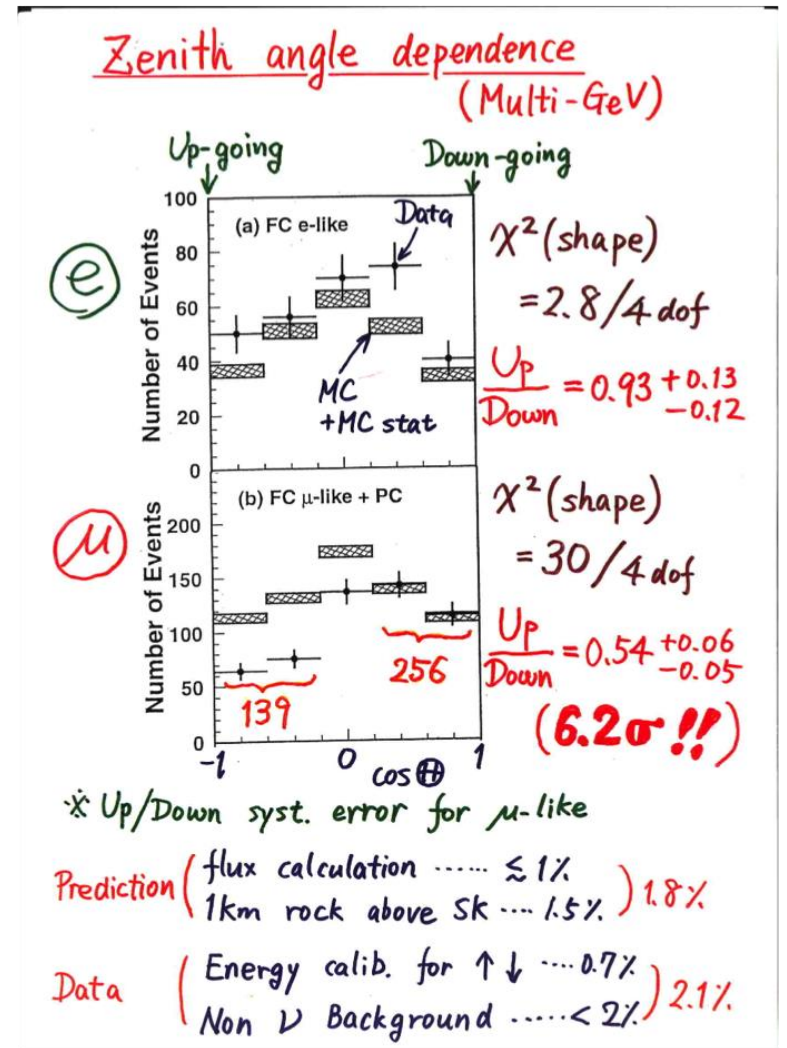 Zenith angle dependence
(Multi-GeV)
Up-going
Down-going
e
Number of Events
100
80
60
40
20
0
(a) FC e-like
Data
MC
+MC stat
χ²(shape)
=2.8/4 dof
Up/Down = 0.93 +0.13 −0.12
μ
Number of Events
200
150
100
50
0
(b) FC μ-like + PC
139
256
-1
0
1
cosΘ
χ²(shape)
=30/4 dof
Up/Down = 0.54 +0.06 −0.05
(6.2σ!!)
※ Up/Down syst. error for μ-like
Prediction ( flux calculation ...... ≲ 1%
1km rock above SK .... 1.5% ) 1.8%
Data ( Energy calib. for ↑↓ .... 0.7%
Non ν Background ...... < 2% ) 2.1%